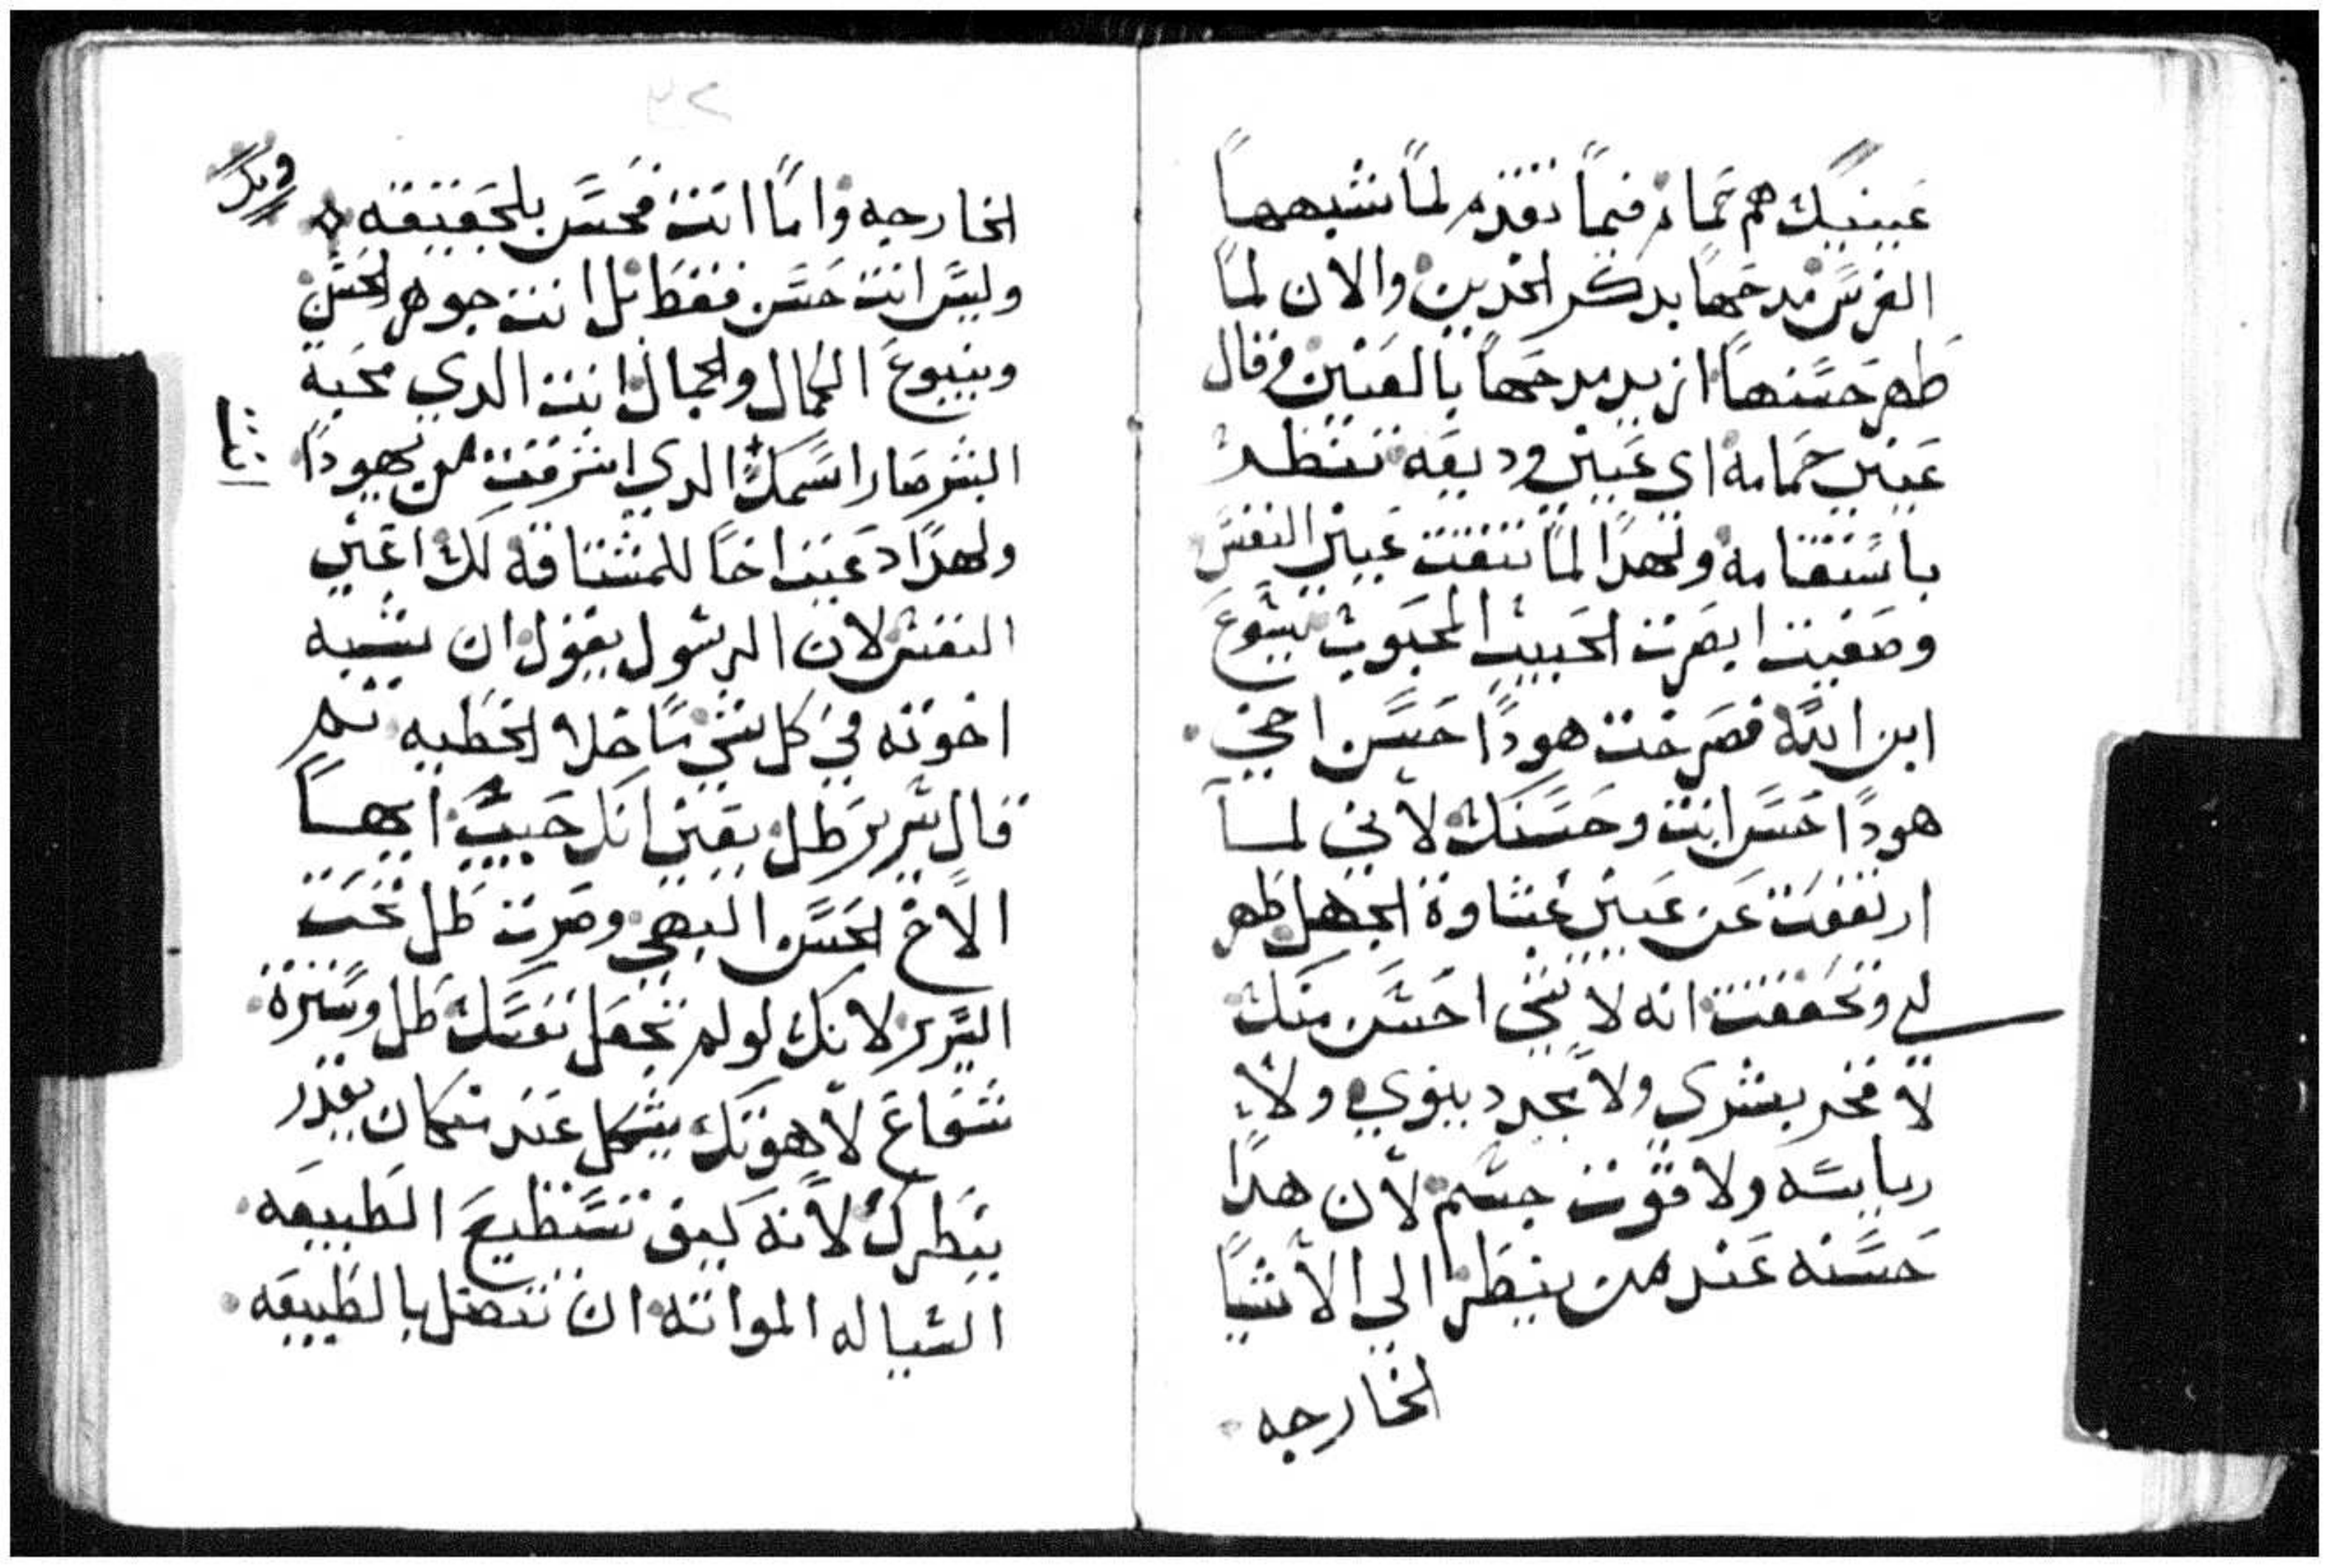 عينيك هم حمام فيما تقدم لما شبهها
الفرس مدحها بدكر الخدين والان لما
طهر حسنها ازيد مدحها بالعينين وقال
عينين حمامه اي عينين وديعه تنظر
باستقامه ولهدا لما تنقت عينين النفس
وصفيت ابصرت الحبيب المحبوب يسوع
ابن الله فصرخت هودا حسن اخي
هودا حسن انت وحسنك لاني لما
ارتفعت عن عيني غشاوة الجهل طهر
لي وتحققت انه لا شي احسن منك
لا فخر بشري ولا مجد دنيوي ولا
رياسه ولا قوت جسم لان هدا
حسنه عند من ينطر الي الاشيا
الخارجه
الخارجه واما انت فحسن بالحقيقه
وليس انت حسن فقط بل انت جوهر الحسن
وينبوع الكمال والجمال انت الدي محبة
البشر صار اسمك الدي اشرقت من يهودا
ولهدا دعيت اخا للمشتاقه لك اعني
النفس لان الرسول يقول ان يشبه
اخوته في كل شي ما خلا الخطيه تم
قال سرير طل يقين انك حبيب ايها
الاخ الحسن البهي وصرت طل تحت
السرير لانك لو لم تجعل نفسك طل وسترة
شعاع لاهوتك بشكل عبد من كان يقدر
ينطرك لانه كيف تستطيع الطبيعه
السياله المواته ان تتصل بالطبيعه